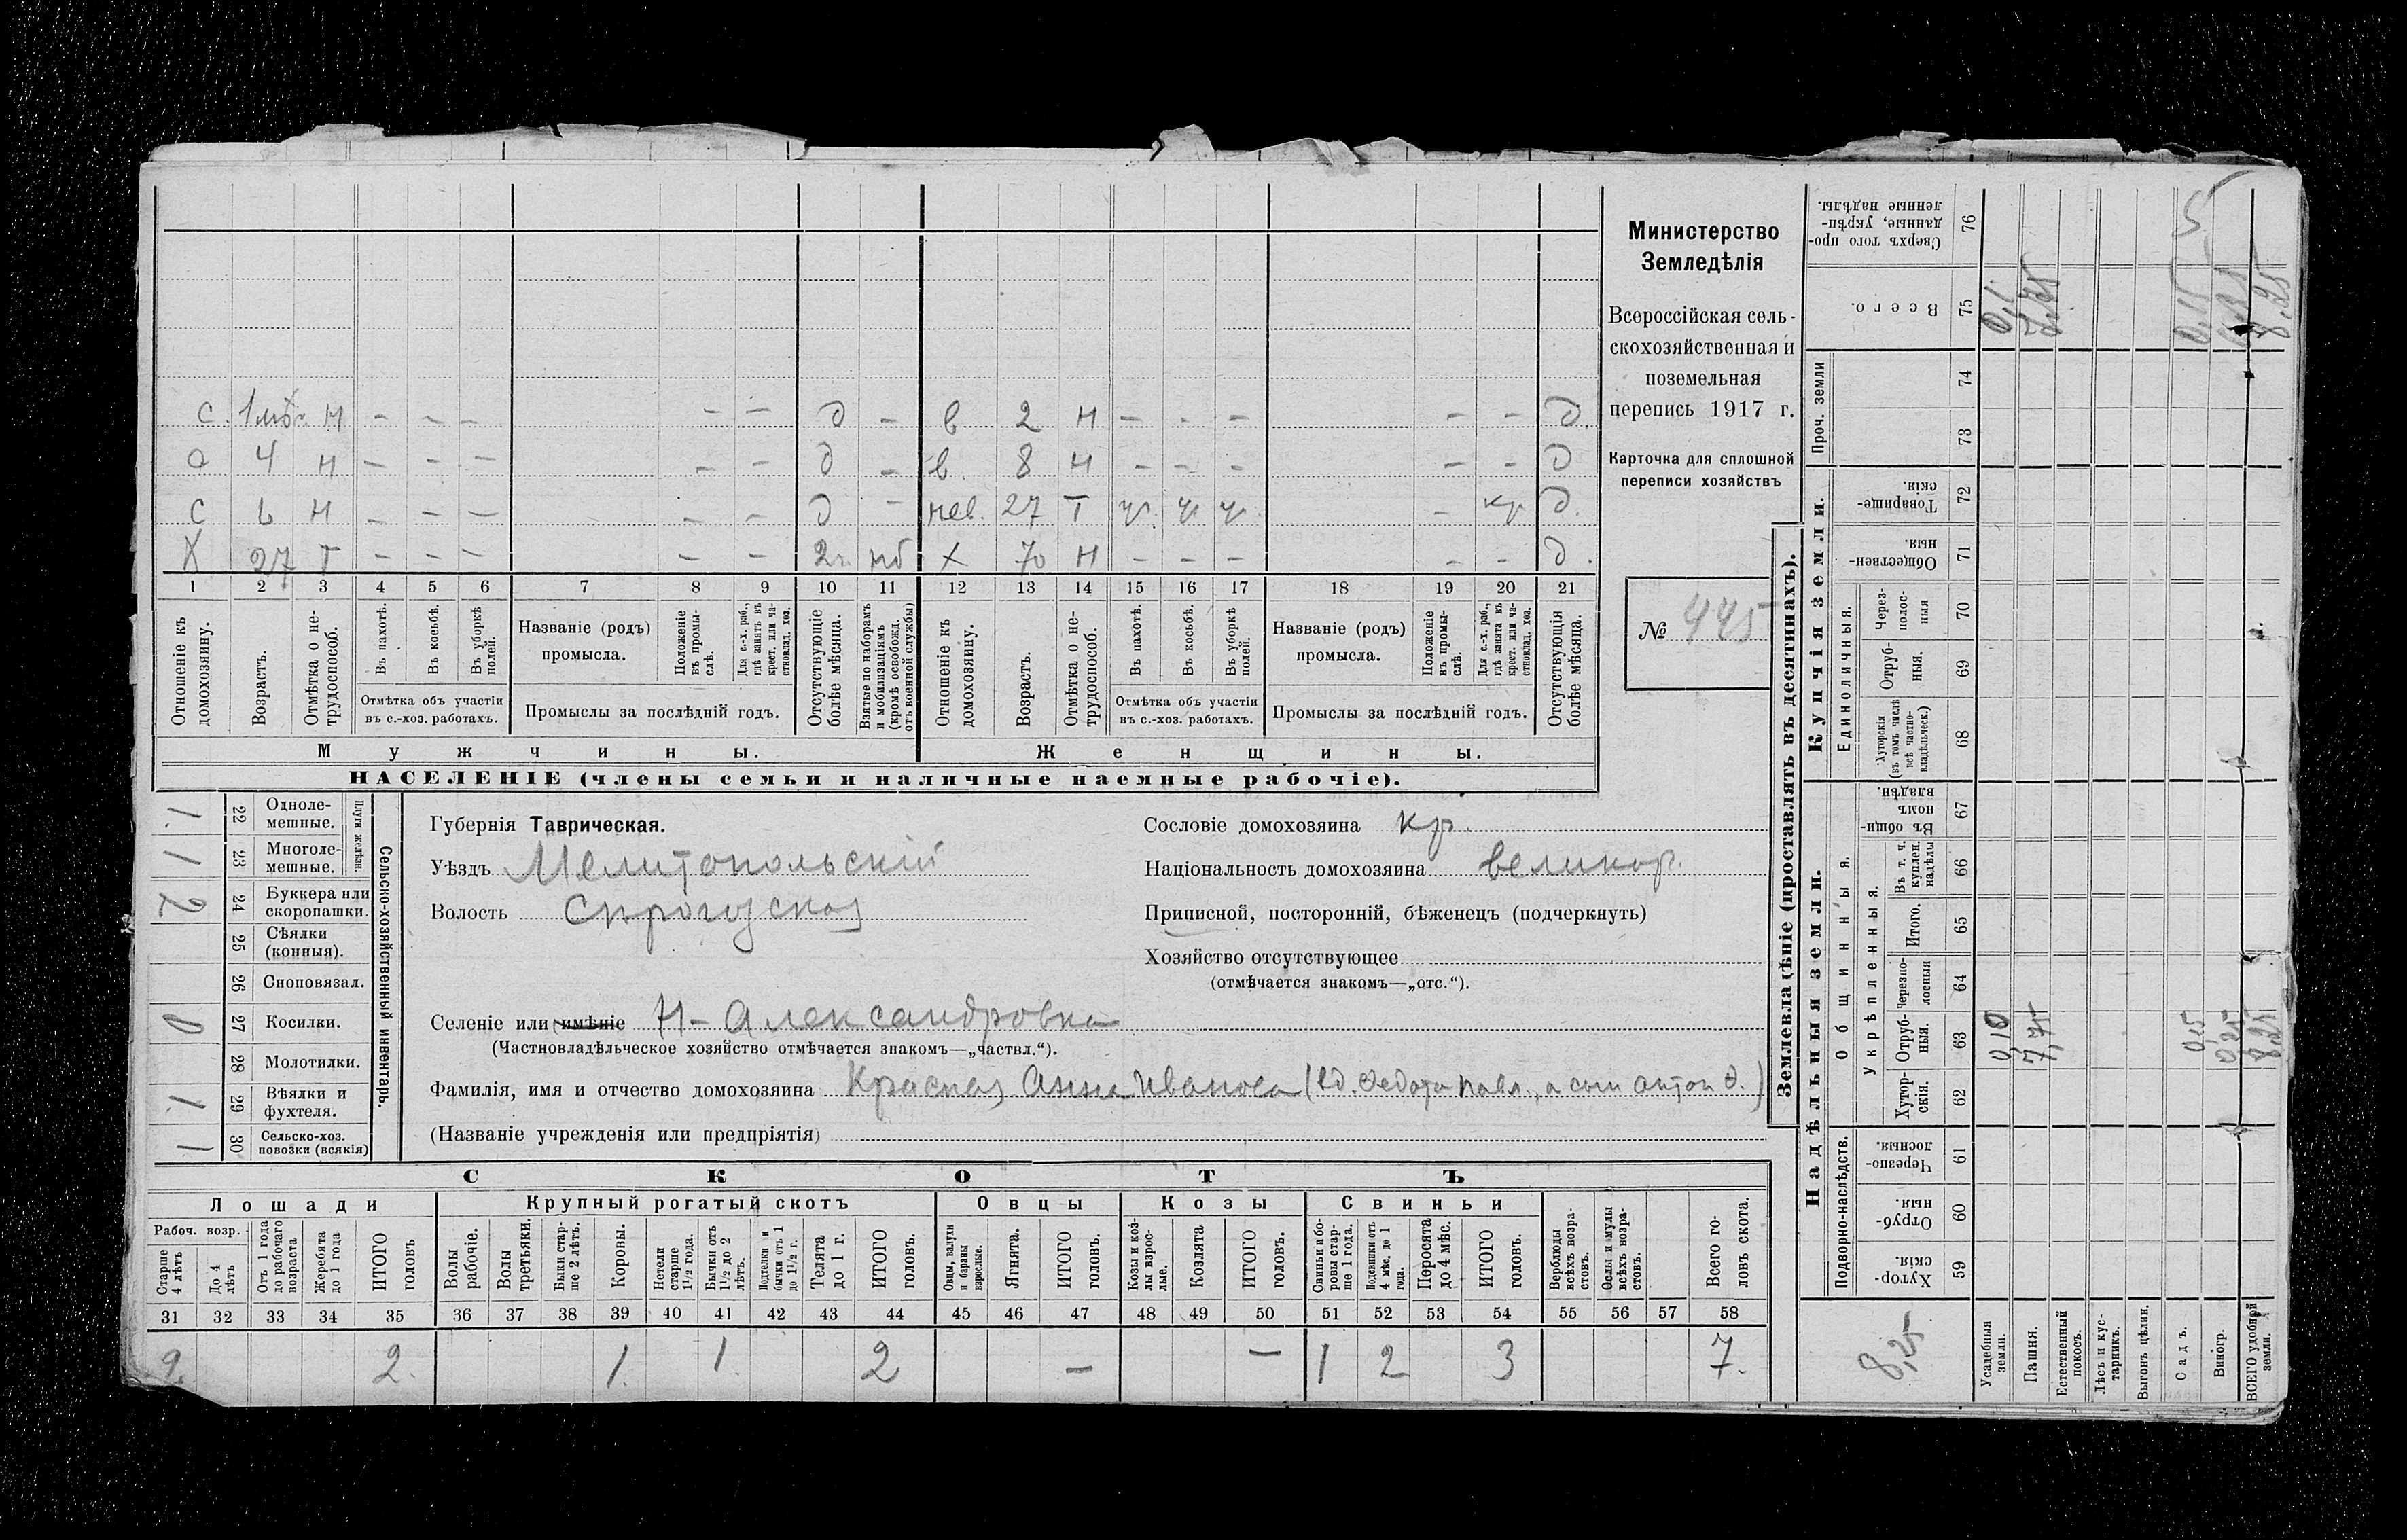 Министерство
Земледѣлія
Всероссійская сель-
скохозяйственная и
поземельная
перепись 1917 г.
Карточка для сплошной
переписи хозяйствъ
№ 445
с 1 м. н - - - - - д - в 2 н - - - - - д.
с 4 н - - - - - д - в 8 н - - - - - д
с 6 н - - - - - д - нев. 27 т ч ч ч - кр д.
х 27 т - - - - - 2 г. мб х 70 н - - - - - д.
1 2 3 4 5 6 7 8 9 10 11 12 13 14 15 16 17 18 19 20 21
Отношеніе къ домохозяину.
Возрастъ.
Отмѣтка о не-трудоспособ.
Въ пахотѣ.
Въ косьбѣ.
Въ уборкѣ полей.
Отмѣтка объ участіи
въ с.-хоз. работахъ.
Названіе (родъ)
промысла.
Положеніе въ промы-слѣ.
Для с.-х. раб., гдѣ занятъ въ крест. или ча-стновлад. хоз.
Промыслы за послѣдній годъ.
Отсутствующіе болѣе мѣсяца.
Взятые по наборамъ и мобилизаціямъ (кромѣ освобожд. отъ военной службы)
Отношеніе къ домохозяину.
Возрастъ.
Отмѣтка о не-трудоспособ.
Въ пахотѣ.
Въ косьбѣ.
Въ уборкѣ полей.
Отмѣтка объ участіи
въ с.-хоз. работахъ.
Названіе (родъ)
промысла.
Положеніе въ промы-слѣ.
Для с.-х. раб., гдѣ занята въ крест. или ча-стновлад. хоз.
Промыслы за послѣдній годъ.
Отсутствующія болѣе мѣсяца.
Мужчины.
Женщины.
НАСЕЛЕНІЕ (члены семьи и наличные наемные рабочіе).
Сельско-хозяйственный инвентарь.
Плуги желѣзн.
1. 22 Одноле-мешные.
1 23 Многоле-мешные.
2 24 Буккера или скоропашки.
25 Сѣялки (конныя).
26 Сноповязал.
0 27 Косилки.
28 Молотилки.
1. 29 Вѣялки и фухтеля.
1 30 Сельско-хоз. повозки (всякія)
Губернія Таврическая.
Уѣздъ Мелитопольскій
Волость Сирогузская
Селеніе или имѣніе Н-Александровка
(Частновладѣльческое хозяйство отмѣчается знакомъ—„частвл.“).
Фамилія, имя и отчество домохозяина Красная Анна Иванова (вд. Федота Павл., а сын Антон Ф.)
(Названіе учрежденія или предпріятія)
Сословіе домохозяина кр.
Національность домохозяина великор.
Приписной, посторонній, бѣженецъ (подчеркнуть)
Хозяйство отсутствующее
(отмѣчается знакомъ—„отс.“).
СКОТЪ
Лошади
Крупный рогатый скотъ
Овцы
Козы
Свиньи
Рабоч. возр.
Старше 4 лѣтъ
До 4 лѣтъ
Отъ 1 года до рабочаго возраста
Жеребята до 1 года
ИТОГО головъ
Волы рабочіе.
Волы третьяки.
Быки стар-ше 2 лѣтъ.
Коровы.
Нетели старше 1½ года.
Бычки отъ 1½ до 2 лѣтъ.
Подтелки и бычки отъ 1 до 1½ г.
Телята до 1 г.
ИТОГО головъ.
Овцы, валухи и бараны взрослые.
Ягнята.
ИТОГО головъ.
Козы и коз-лы взрос-лые.
Козлята
ИТОГО головъ.
Свиньи и бо-ровы стар-ше 1 года.
Подсвинки отъ 4 мѣс. до 1 года.
Поросята до 4 мѣс.
ИТОГО головъ.
Верблюды всѣхъ возра-стовъ.
Ослы и мулы всѣхъ возра-стовъ.
Всего го-ловъ скота.
31 32 33 34 35 36 37 38 39 40 41 42 43 44 45 46 47 48 49 50 51 52 53 54 55 56 57 58
2. 2. 1. 1 2 - - 1 2 3 7.
Землевладѣніе (проставлять въ десятинахъ).
Надѣльныя земли.
Купчія земли.
Проч. земли
Подворно-наслѣдств.
Общинныя.
Укрѣпленныя.
Единоличныя.
Сверхъ того про-данные, укрѣп-ленные надѣлы. 76
Всего. 75
74
73
Товарище-скія. 72
Обществен-ныя. 71
Через-полос-ныя 70
Отруб-ныя. 69
Хуторскія (въ томъ числѣ всѣ частно-владѣльческ.) 68
Въ общин-номъ владѣн. 67
Въ т. ч. куплен. надѣлы 66
Итого. 65
Черезпо-лосныя 64
Отруб-ныя. 63
Хутор-скія. 62
Черезпо-лосныя. 61
Отруб-ныя. 60
Хутор-скія. 59
5
0,1 7,75 0,15 8,25
0,10 7,75 0,15 0,25 8,25
8,25
Усадебныя земли.
Пашня.
Естественный покосъ.
Лѣсъ и кус-тарникъ.
Выгонъ цѣлин.
Садъ.
Виногр.
ВСЕГО удобной земли.